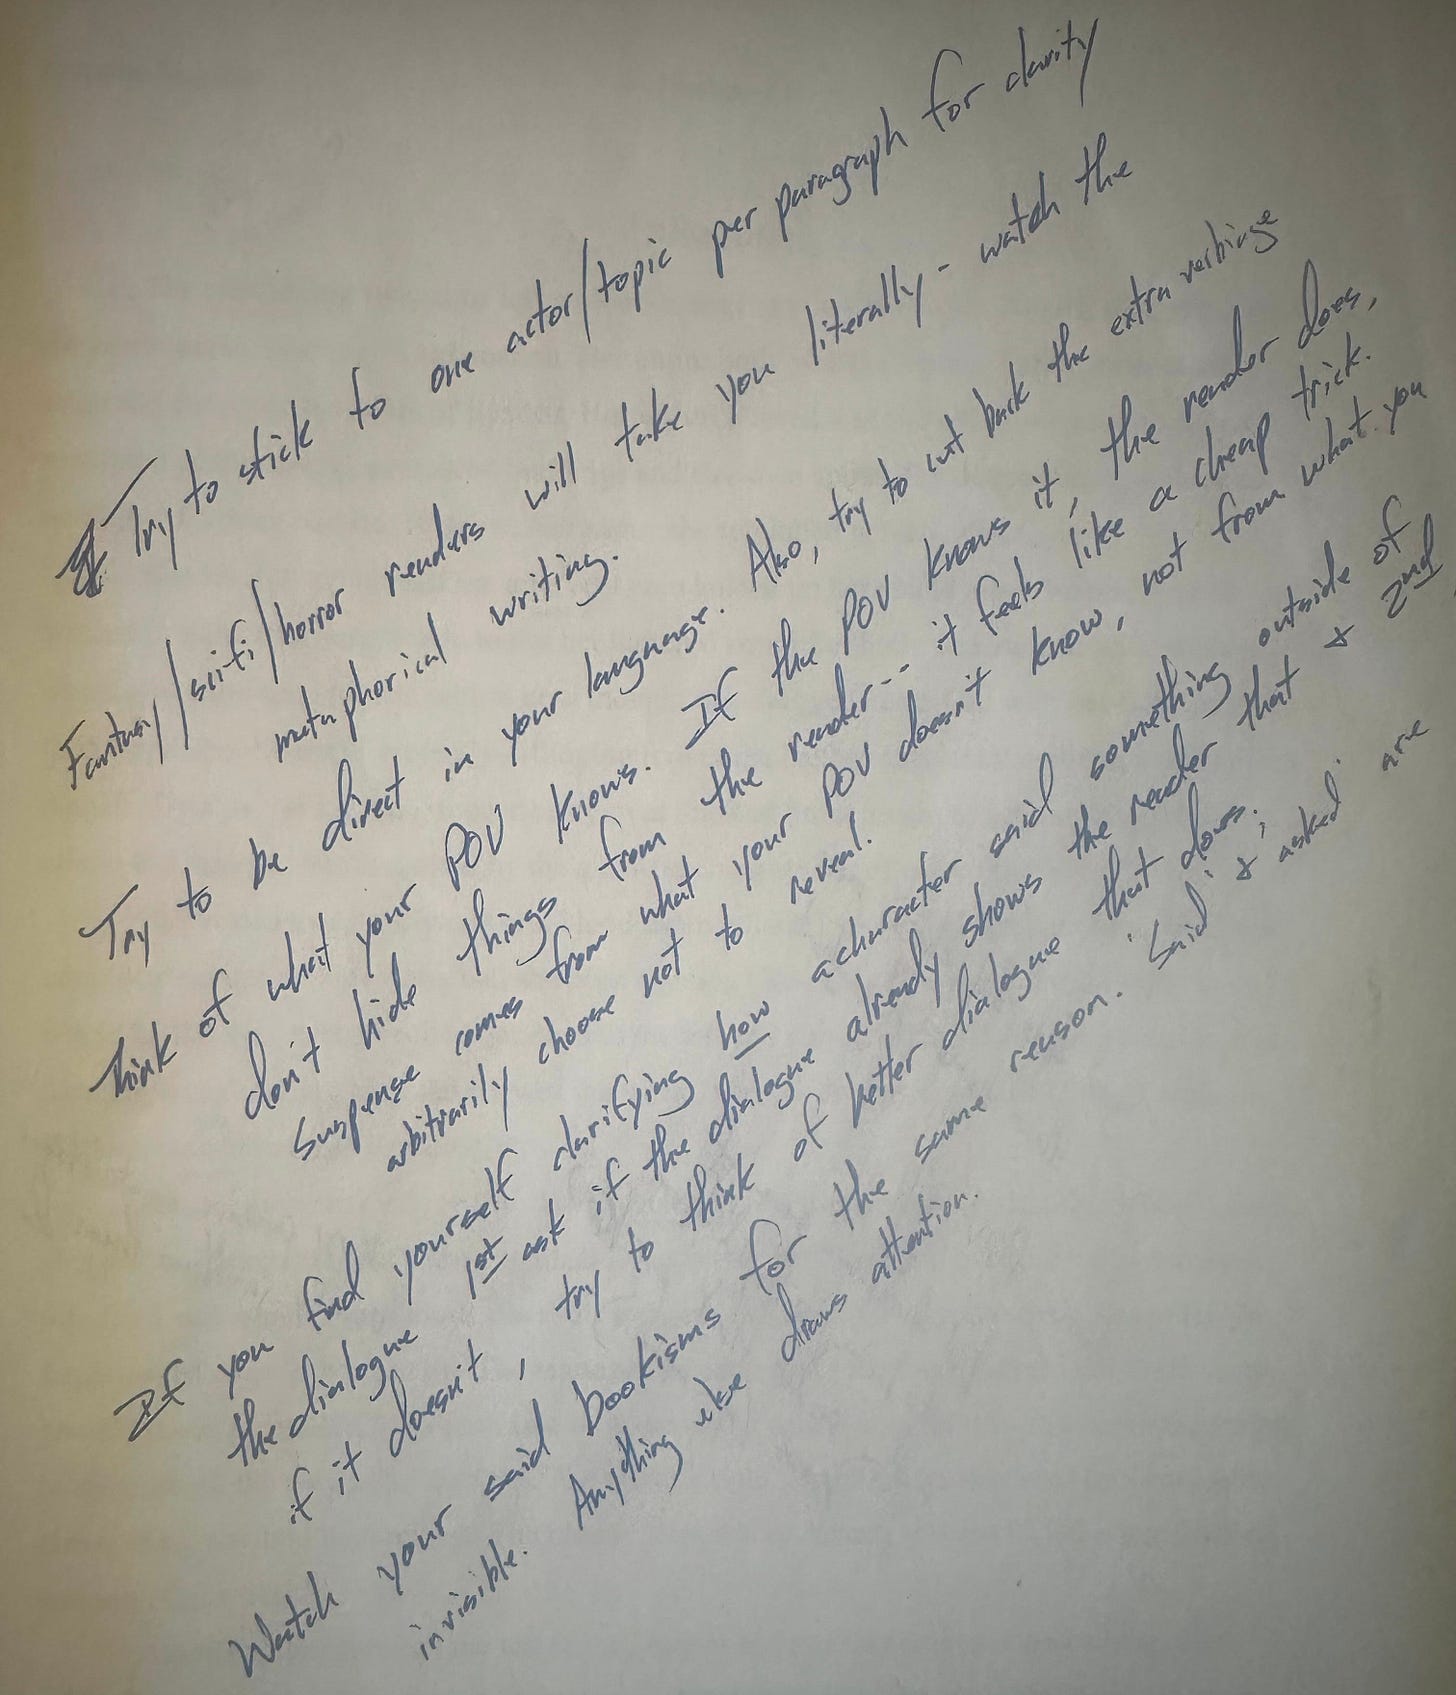 Try to stick to one actor/topic per paragraph for clarity
Fantasy/scifi/horror readers will take you literally - watch the
metaphorical writing.
Try to be direct in your language. Also, try to cut back the extra verbiage
Think of what your POV knows. If the POV knows it, the reader does,
don't hide things from the reader -- it feels like a cheap trick.
Suspense comes from what your POV doesn't know, not from what you
arbitrarily choose not to reveal.
If you find yourself clarifying how a character said something outside of
the dialogue 1st ask if the dialogue already shows the reader that & 2nd
if it doesn't, try to think of better dialogue that does.
Watch your said bookisms for the same reason. 'Said' & 'asked' are
invisible. Anything else draws attention.